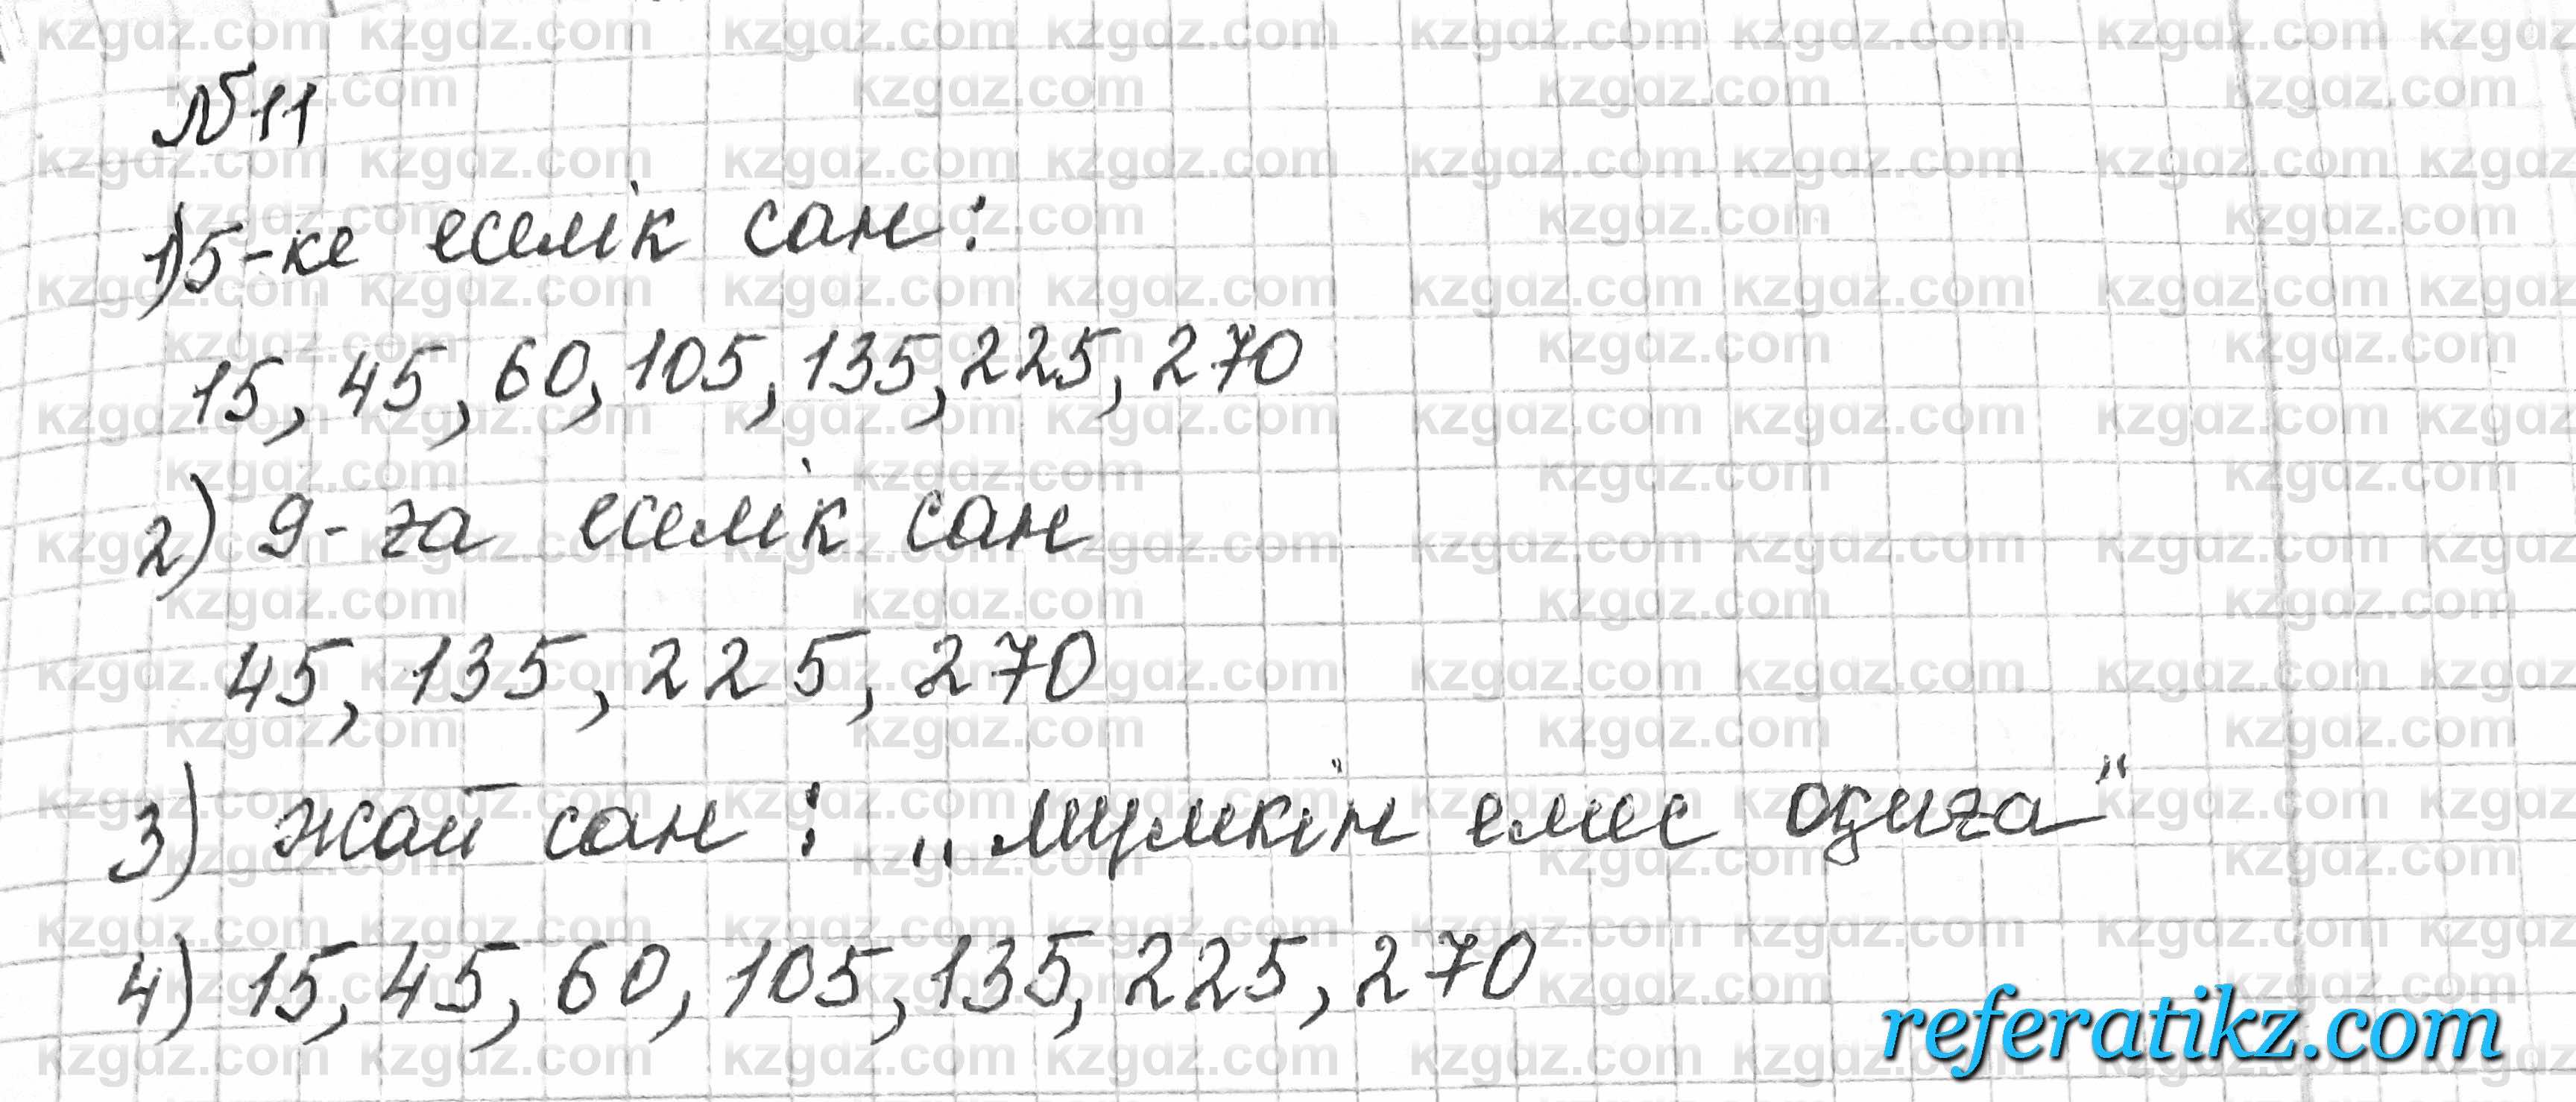 №11
1) 5-ке еселік сан:
15, 45, 60, 105, 135, 225, 270
2) 9-ға еселік сан
45, 135, 225, 270
3) жай сан: „мүмкін емес оқиға"
4) 15, 45, 60, 105, 135, 225, 270
referatikz.com